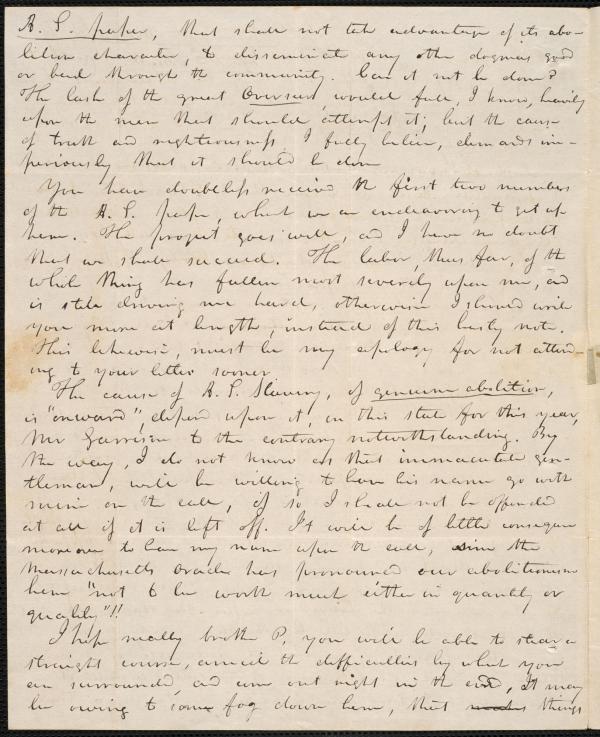 A. S. paper, that shall not take advantage of its abo-
lition character, to disseminate any other dogmas good
or bad through the community. Can it not be done?
The lash of the great Overseer, would fall, I know, heavily
upon the man that should attempt it; but the cause
of truth and righteousness I fully believe, demands im-
periously that it should be done
You have doubtless received the first two numbers
of the A. S. paper, what we are endeavoring to get up
here. The project goes well, and I have no doubt
that we shall succeed. The labor, thus far, of the
whole thing has fallen most severely upon me, and
is still driving me hard, otherwise I should write
you more at length, instead of this hasty note.
This likewise, must be my apology for not attend-
ing to your letter sooner.
The cause of A. S. Slavery, of genuine abolition,
is "onward", depend upon it, in this state for this year,
Mr Garrison to the contrary notwithstanding. By
the way, I do not know as that immaculate gen-
tleman, will be willing to have his name go with
mine on the call, if so I shall not be offended
at all if it is left off. It will be of little consequence
moreover to have my name upon the call, since the
Massachusetts oracle has pronounced our abolitionism
here "not to be worth much either in quantity or
quality"!!
I hope really brother P, you will be able to steer a
straight course, amid the difficulties by what you
are surrounded, and come out right in the end, It may
be owing to some fog down here, that things